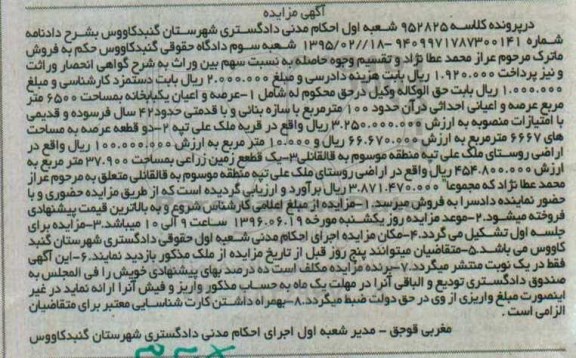 آگهی مزایده
درپرونده کلاسه ۹۵۲۸۲۵ شعبه اول احکام مدنی دادگستری شهرستان گنبدکاووس بشرح دادنامه
شماره ۹۴۰۹۹۷۱۷۸۷۳۰۰۱۴۱ -۱۳۹۵/۰۲/۱۸ شعبه سوم دادگاه حقوقی گنبدکاووس حکم به فروش
ماترک مرحوم عراز محمد عطا نژاد و تقسیم وجوه حاصله به نسبت سهم بین وراث به شرح گواهی انحصار وراثت
و نیز پرداخت ۱.۹۲۰.۰۰۰ ریال بابت هزینه دادرسی و مبلغ ۲.۰۰۰.۰۰۰ ریال بابت دستمزد کارشناسی و مبلغ
۱.۰۰۰.۰۰۰ ریال بابت حق الوکاله وکیل درحق محکوم له شامل ۱-عرصه و اعیان یکبابخانه بمساحت ۶۵۰۰ متر
مربع عرصه و اعیانی احداثی در آن حدود ۱۰۰ مترمربع با سازه بنائی و با قدمتی حدود۴۲ سال فرسوده و قدیمی
با امتیازات منصوبه به ارزش ۳.۲۵۰.۰۰۰.۰۰۰ ریال واقع در قریه ملک علی تپه ۲-دو قطعه عرصه به مساحت
های ۶۶۶۷ مترمربع به ارزش ۶۶.۶۷۰.۰۰۰ ریال و ۱۰.۰۰۰ متر مربع به ارزش ۱۰۰.۰۰۰.۰۰۰ ریال واقع در
اراضی روستای ملک علی تپه منطقه موسوم به قالقانلی۳-یک قطعع زمین زراعی بمساحت ۳۷.۹۰۰ متر مربع به
ارزش ۴۵۴.۸۰۰.۰۰۰ ریال واقع در اراضی روستای ملک علی تپه منطقه موسوم به قالقانلی متعلق به مرحوم عراز
محمد عطا نژاد که مجموعا" ۳.۸۷۱.۴۷۰.۰۰۰ ریال برآورد و ارزیابی گردیده است که از طریق مزایده حضوری و با
حضور نماینده دادسرا به فروش میرسد.۱-مزایده از مبلغ اعلامی کارشناس شروع و به بالاترین قیمت پیشنهادی
فروخته میشود.۲-موعد مزایده روز یکشنبه مورخه ۱۳۹۶.۰۶.۱۹ ساعت ۹ الی ۱۰ میباشد.۳-مزایده برای
جلسه اول تشکیل می گردد.۴-مکان مزایده اجرای احکام مدنی شعبه اول حقوقی دادگستری شهرستان گنبد
کاووس می باشد.۵-متقاضیان میتوانند پنج روز قبل از تاریخ مزایده از ملک مذکور بازدید نمایند.۶-این آگهی
فقط در یک نوبت منتشر میگردد.۷-برنده مزایده مکلف است ده درصد بهای پیشنهادی خویش را فی المجلس به
صندوق دادگستری تودیع و الباقی آنرا در مهلت یک ماه به حساب مذکور واریز و فیش آنرا ارائه نماید در غیر
اینصورت مبلغ واریزی از وی در حق دولت ضبط میگردد.۸-بهمراه داشتن کارت شناسایی معتبر برای متقاضیان
الزامی است .
مغربی قوجق - مدیر شعبه اول اجرای احکام مدنی دادگستری شهرستان گنبدکاووس